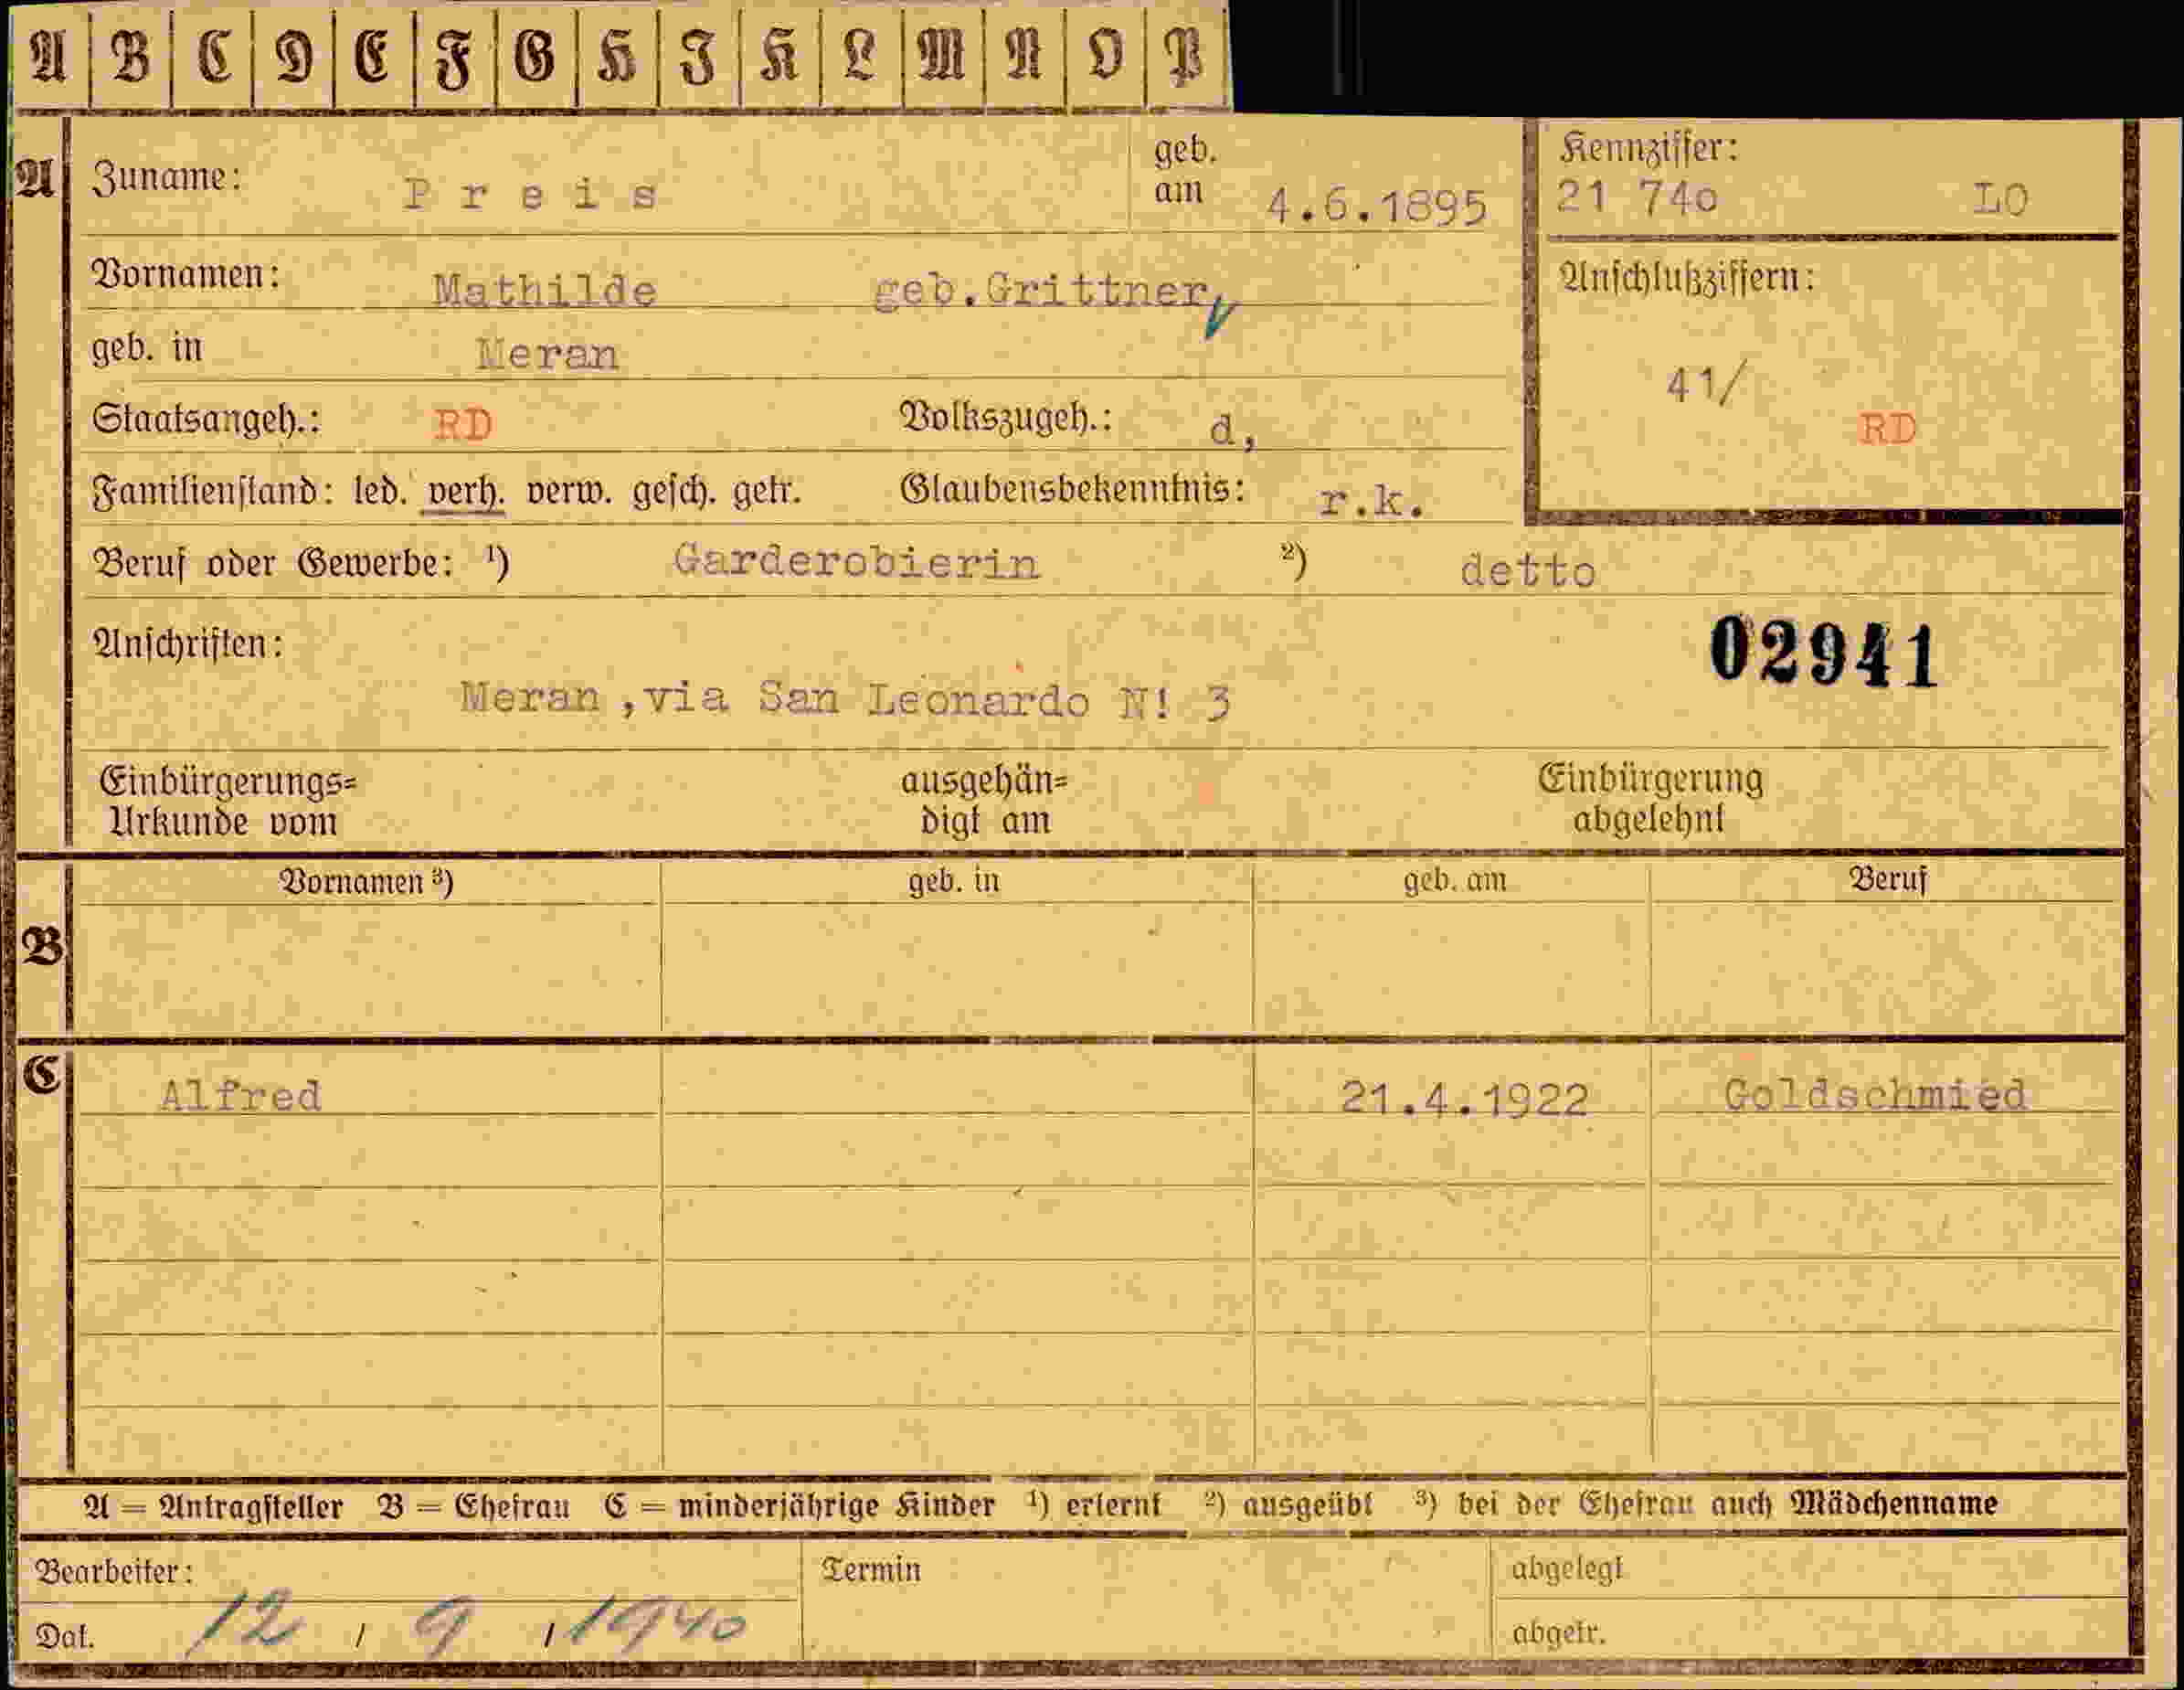 A B C D E F G H I K L M N O P
A Zuname: Preis geb. am 4.6.1895 Kennziffer:
21 74o LO
Vornamen: Mathilde geb.Grittner, Anschlußziffern:
geb. in Meran
41/
Staatsangeh.: RD Volkszugeh.: d, RD
Familienstand: led. verh. verw. gesch. getr. Glaubensbekenntnis: r.k.
Beruf oder Gewerbe: ¹) Garderobierin ²) detto
Anschriften: 02941
Meran ,via San Leonardo N! 3
Einbürgerungs= ausgehän= Einbürgerung
Urkunde vom digt am abgelehnt
Vornamen ³) geb. in geb. am Beruf
B
C Alfred 21.4.1922 Goldschmied
A = Antragsteller B = Ehefrau C = minderjährige Kinder ¹) erlernt ²) ausgeübt ³) bei der Ehefrau auch Mädchenname
Bearbeiter: Termin abgelegt
Dat. 12 / 9 / 1940 abgetr.